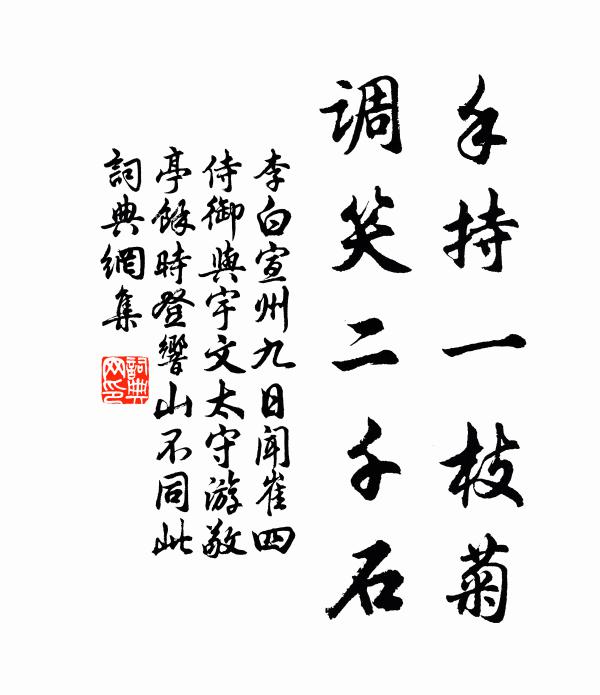 手持一枝菊
调笑二千石
李白宣州九日闻崔四
侍御與宇文太守游敬
亭餘時登響山不同此
詞典網集
詞典
网印